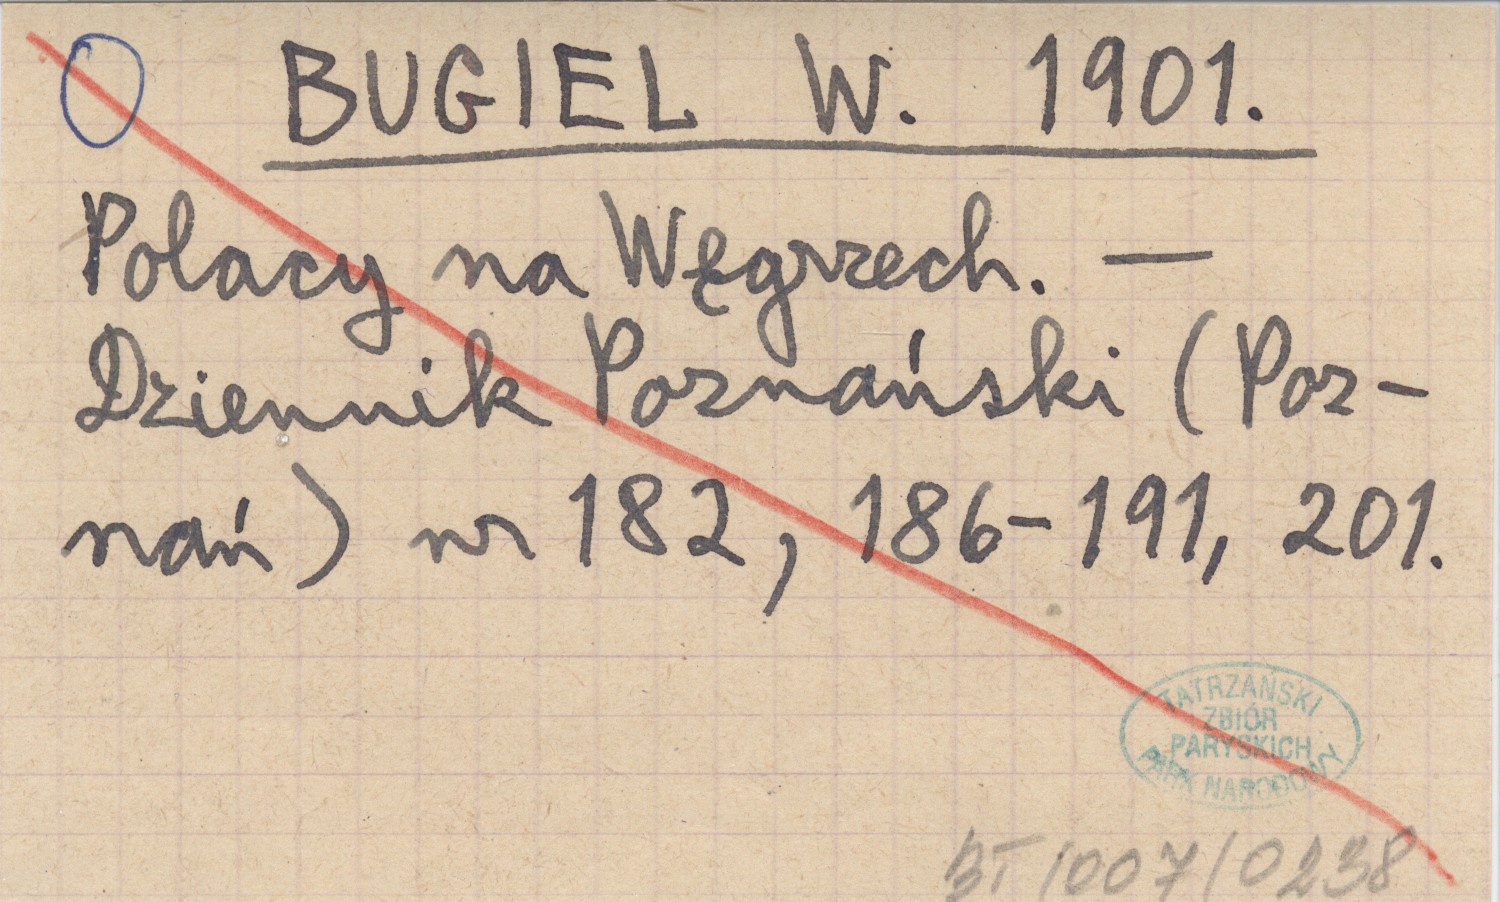 BUGIEL W. 1901.
Polacy na Węgrzech. —
Dziennik Poznański (Poz-
nań) nr 182, 186-191, 201.
TATRZAŃSKI
ZBIÓR
PARYSKICH
PARK NARODOWY
BT/007/0238